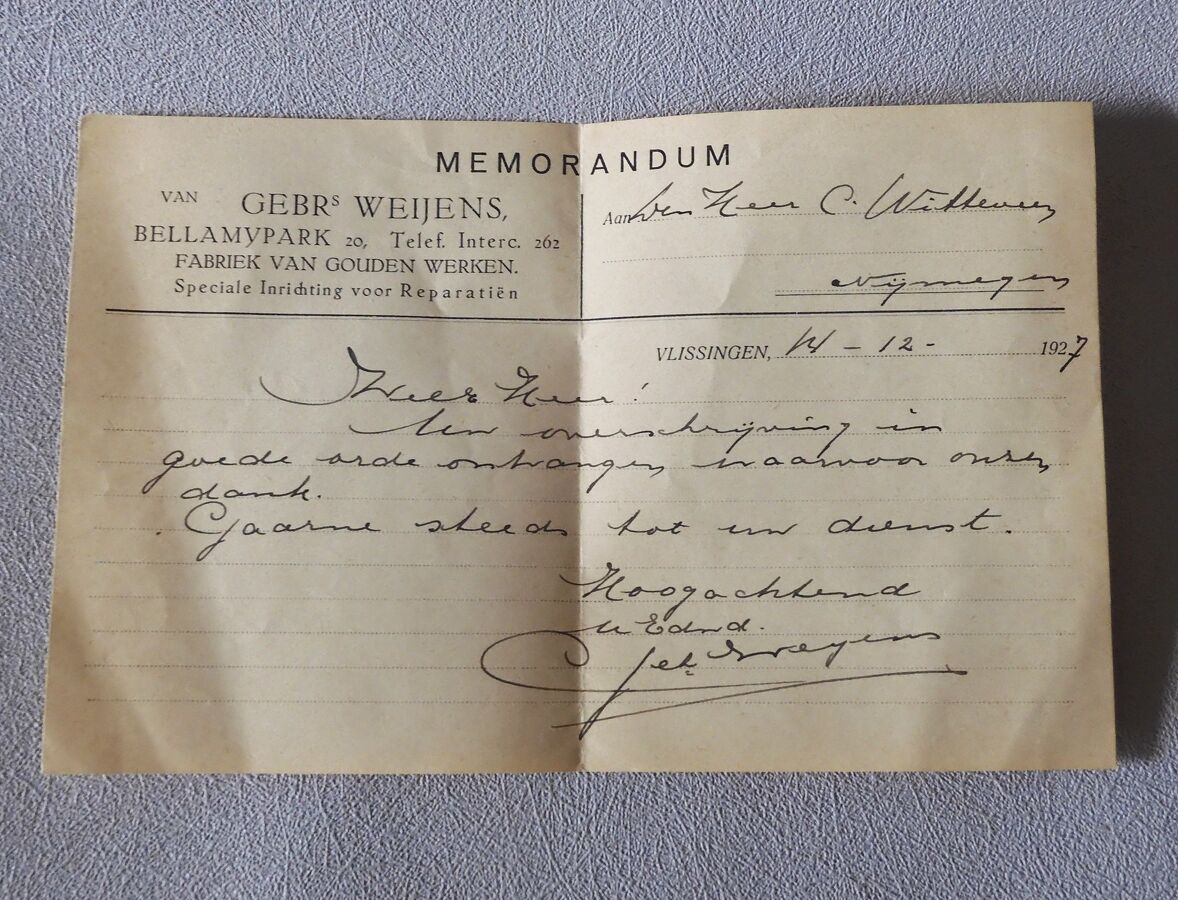 MEMORANDUM
VAN GEBRS WEIJENS,
BELLAMYPARK 20, Telef. Interc. 262
FABRIEK VAN GOUDEN WERKEN.
Speciale Inrichting voor Reparatiën
Aan den Heer C. Witteveen
Nijmegen
VLISSINGEN, 14 - 12 - 1927
WelE Heer!
Uw overschrijving in
goede orde ontvangen waarvoor onzen
dank.
Gaarne steeds tot uw dienst.
Hoogachtend
Weyens